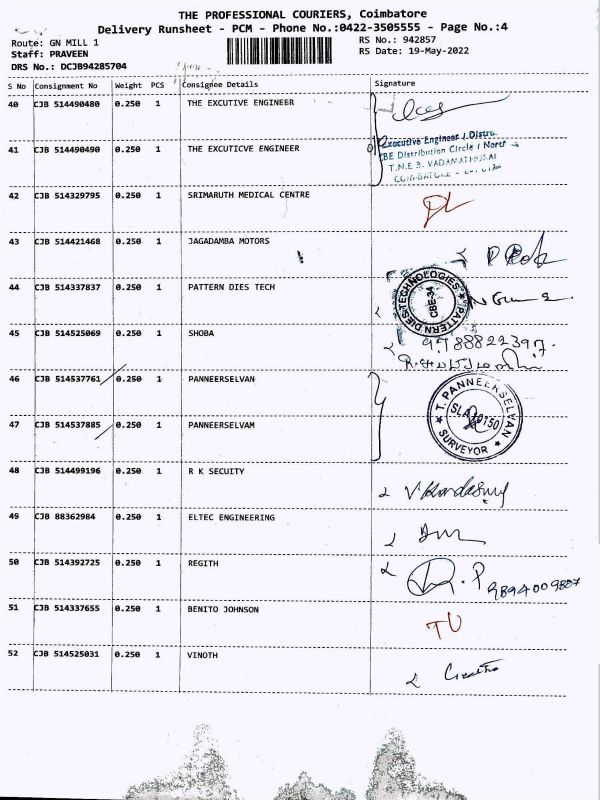 THE PROFESSIONAL COURIERS, Coimbatore
Delivery Runsheet - PCM - Phone No.:0422-3505555 - Page No.:4
Route: GN MILL 1
RS No.: 942857
Staff: PRAVEEN
RS Date: 19-May-2022
DRS No.: DCJB94285704
S No Consignment No Weight PCS Consignee Details Signature
40 CJB 514490480 0.250 1 THE EXCUTIVE ENGINEER
41 CJB 514490490 0.250 1 THE EXCUTICVE ENGINEER
Executive Engineer / Distrn
CBE Distribution Circle / North
T.N.E.B. VADAMATHURAI
42 CJB 514329795 0.250 1 SRIMARUTH MEDICAL CENTRE
43 CJB 514421468 0.250 1 JAGADAMBA MOTORS
44 CJB 514337837 0.250 1 PATTERN DIES TECH
PATTERN DIES TECHNOLOGIES
CBE-34
45 CJB 514525069 0.250 1 SHOBA
9788822397.
46 CJB 514537761 0.250 1 PANNEERSELVAN
47 CJB 514537885 0.250 1 PANNEERSELVAM
T. PANNEERSELVAN
SURVEYOR
48 CJB 514499196 0.250 1 R K SECUITY
49 CJB 88362984 0.250 1 ELTEC ENGINEERING
50 CJB 514392725 0.250 1 REGITH
51 CJB 514337655 0.250 1 BENITO JOHNSON
52 CJB 514525031 0.250 1 VINOTH